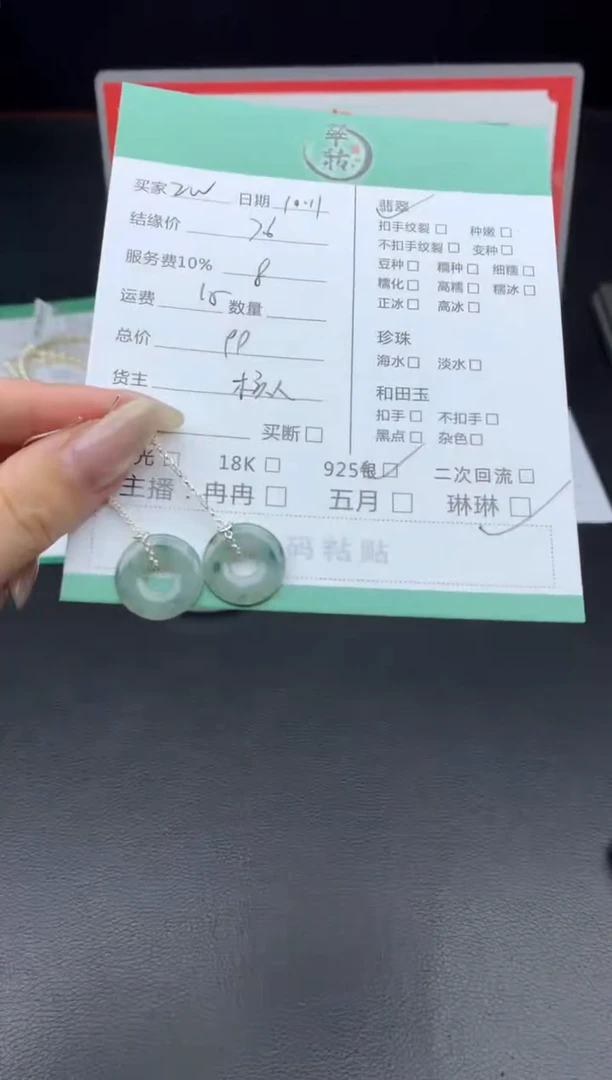 翠
转
买家 ZW 日期 10.11
结缘价 76
服务费10% 8
运费 15 数量
总价 99
货主 杨人
买断 □
光 □ 18K □ 925银 ☑ 二次回流 □
主播: 冉冉 □ 五月 □ 琳琳 □ ✓
码粘贴
翡翠 ✓
扣手纹裂 □ 种嫩 □
不扣手纹裂 □ 变种 □
豆种 □ 糯种 □ 细糯 □
糯化 □ 高糯 □ 糯冰 □
正冰 □ 高冰 □
珍珠
海水 □ 淡水 □
和田玉
扣手 □ 不扣手 □
黑点 □ 杂色 □